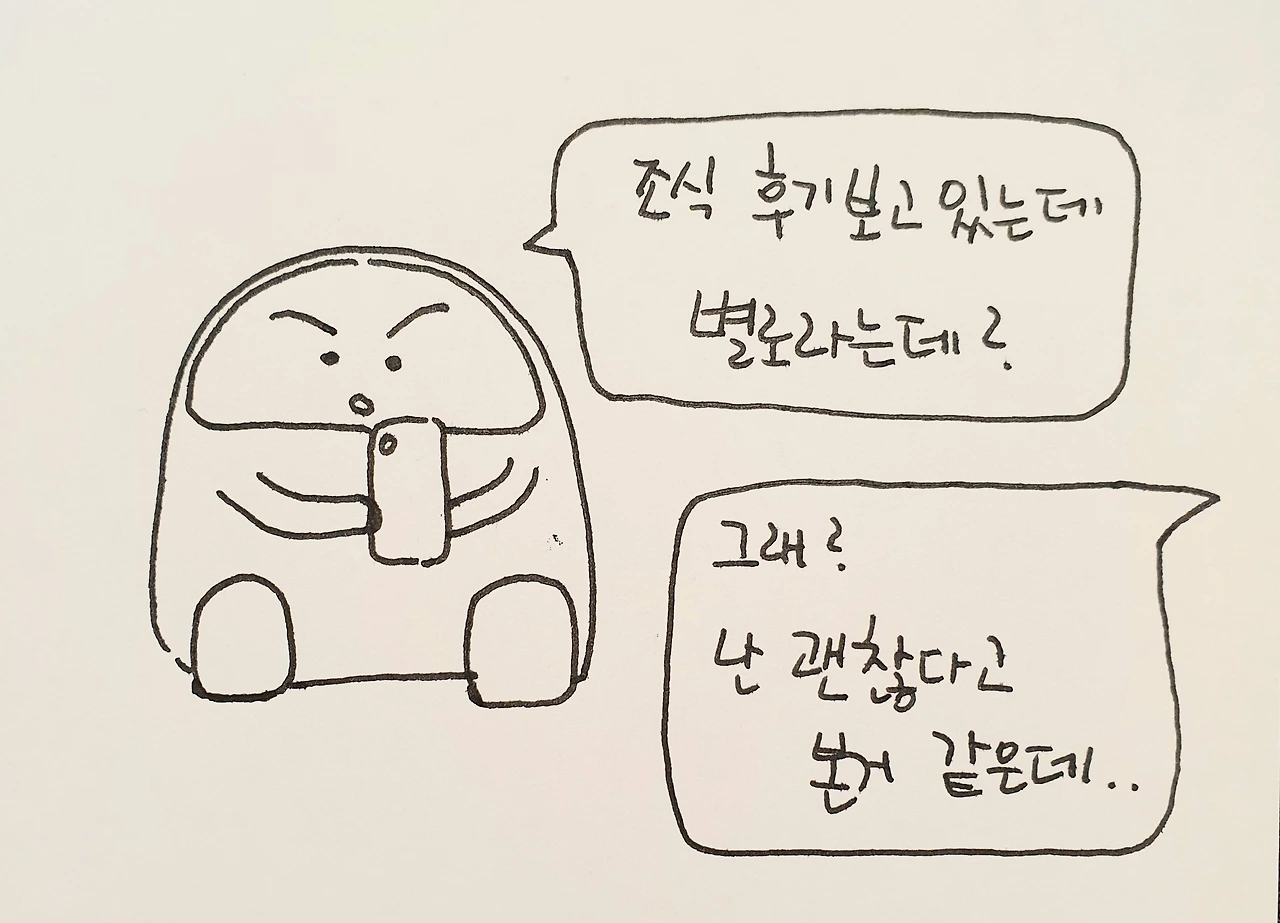 조식 후기보고 있는데
별로라는데?
그래?
난 괜찮다고
본거 같은데..